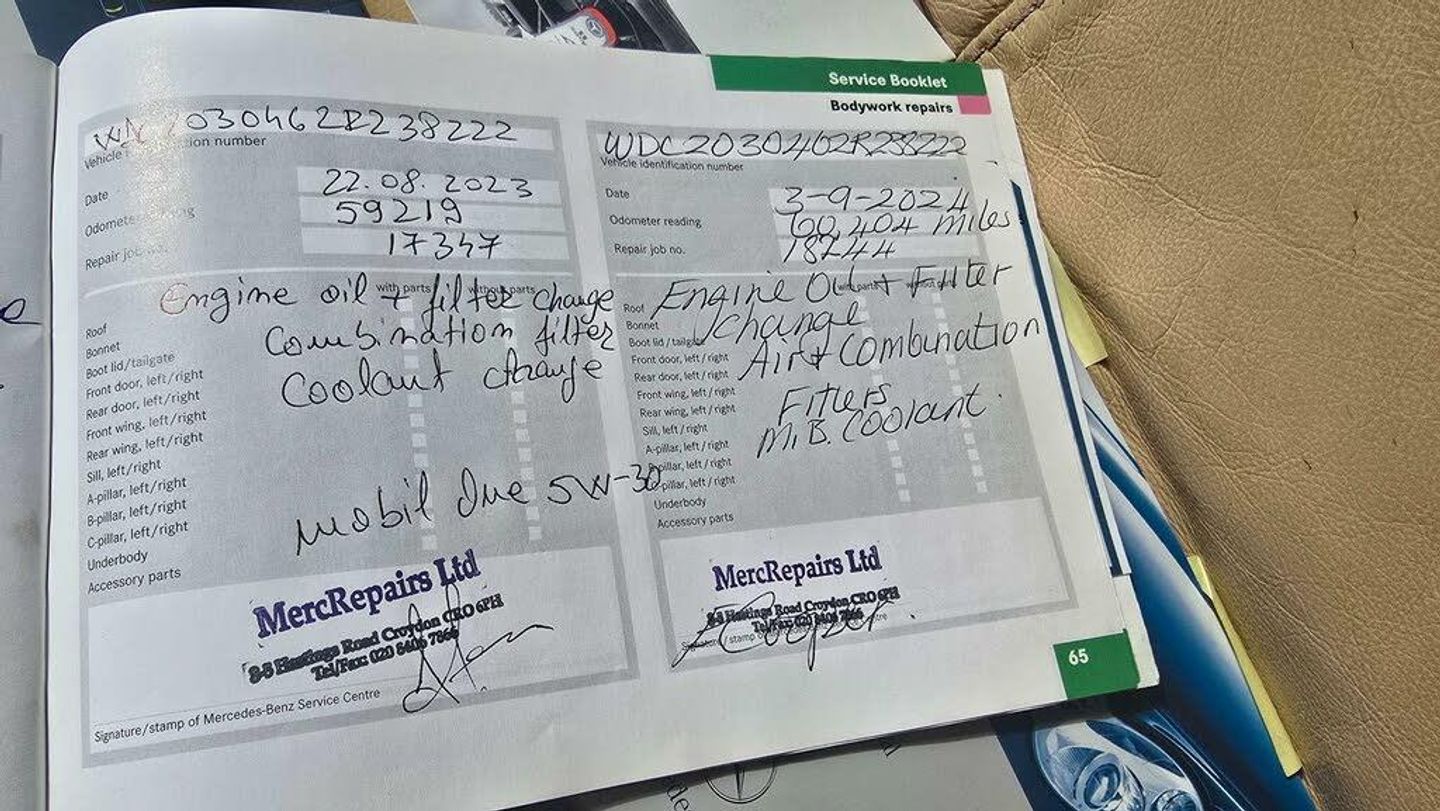 Service Booklet
Bodywork repairs
2030462R238222
Vehicle identification number
Date 22.08.2023
Odometer reading 59219
Repair job no. 17347
with parts without parts
Engine oil + filter change
Combination filter
Coolant change
Roof
Bonnet
Boot lid/tailgate
Front door, left/right
Rear door, left/right
Front wing, left/right
Rear wing, left/right
Sill, left/right
A-pillar, left/right
B-pillar, left/right
C-pillar, left/right
Underbody
Accessory parts
Mobil One 5W-30
MercRepairs Ltd
Hastings Road Croydon CRO 6PH
Tel/Fax: 020 8406 7866
Signature/stamp of Mercedes-Benz Service Centre
WDC2030462R238222
Vehicle identification number
Date 3-9-2024
Odometer reading 60,404 miles
Repair job no. 18244
with parts without parts
Engine Oil + Filter
change
Air + Combination
Filters
M.B. Coolant.
Roof
Bonnet
Boot lid/tailgate
Front door, left/right
Rear door, left/right
Front wing, left/right
Rear wing, left/right
Sill, left/right
A-pillar, left/right
B-pillar, left/right
C-pillar, left/right
Underbody
Accessory parts
MercRepairs Ltd
Hastings Road Croydon CRO 6PH
Tel/Fax: 020 8406 7866
Signature/stamp
65